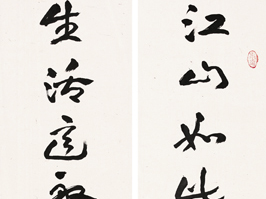 江山如此
生活這